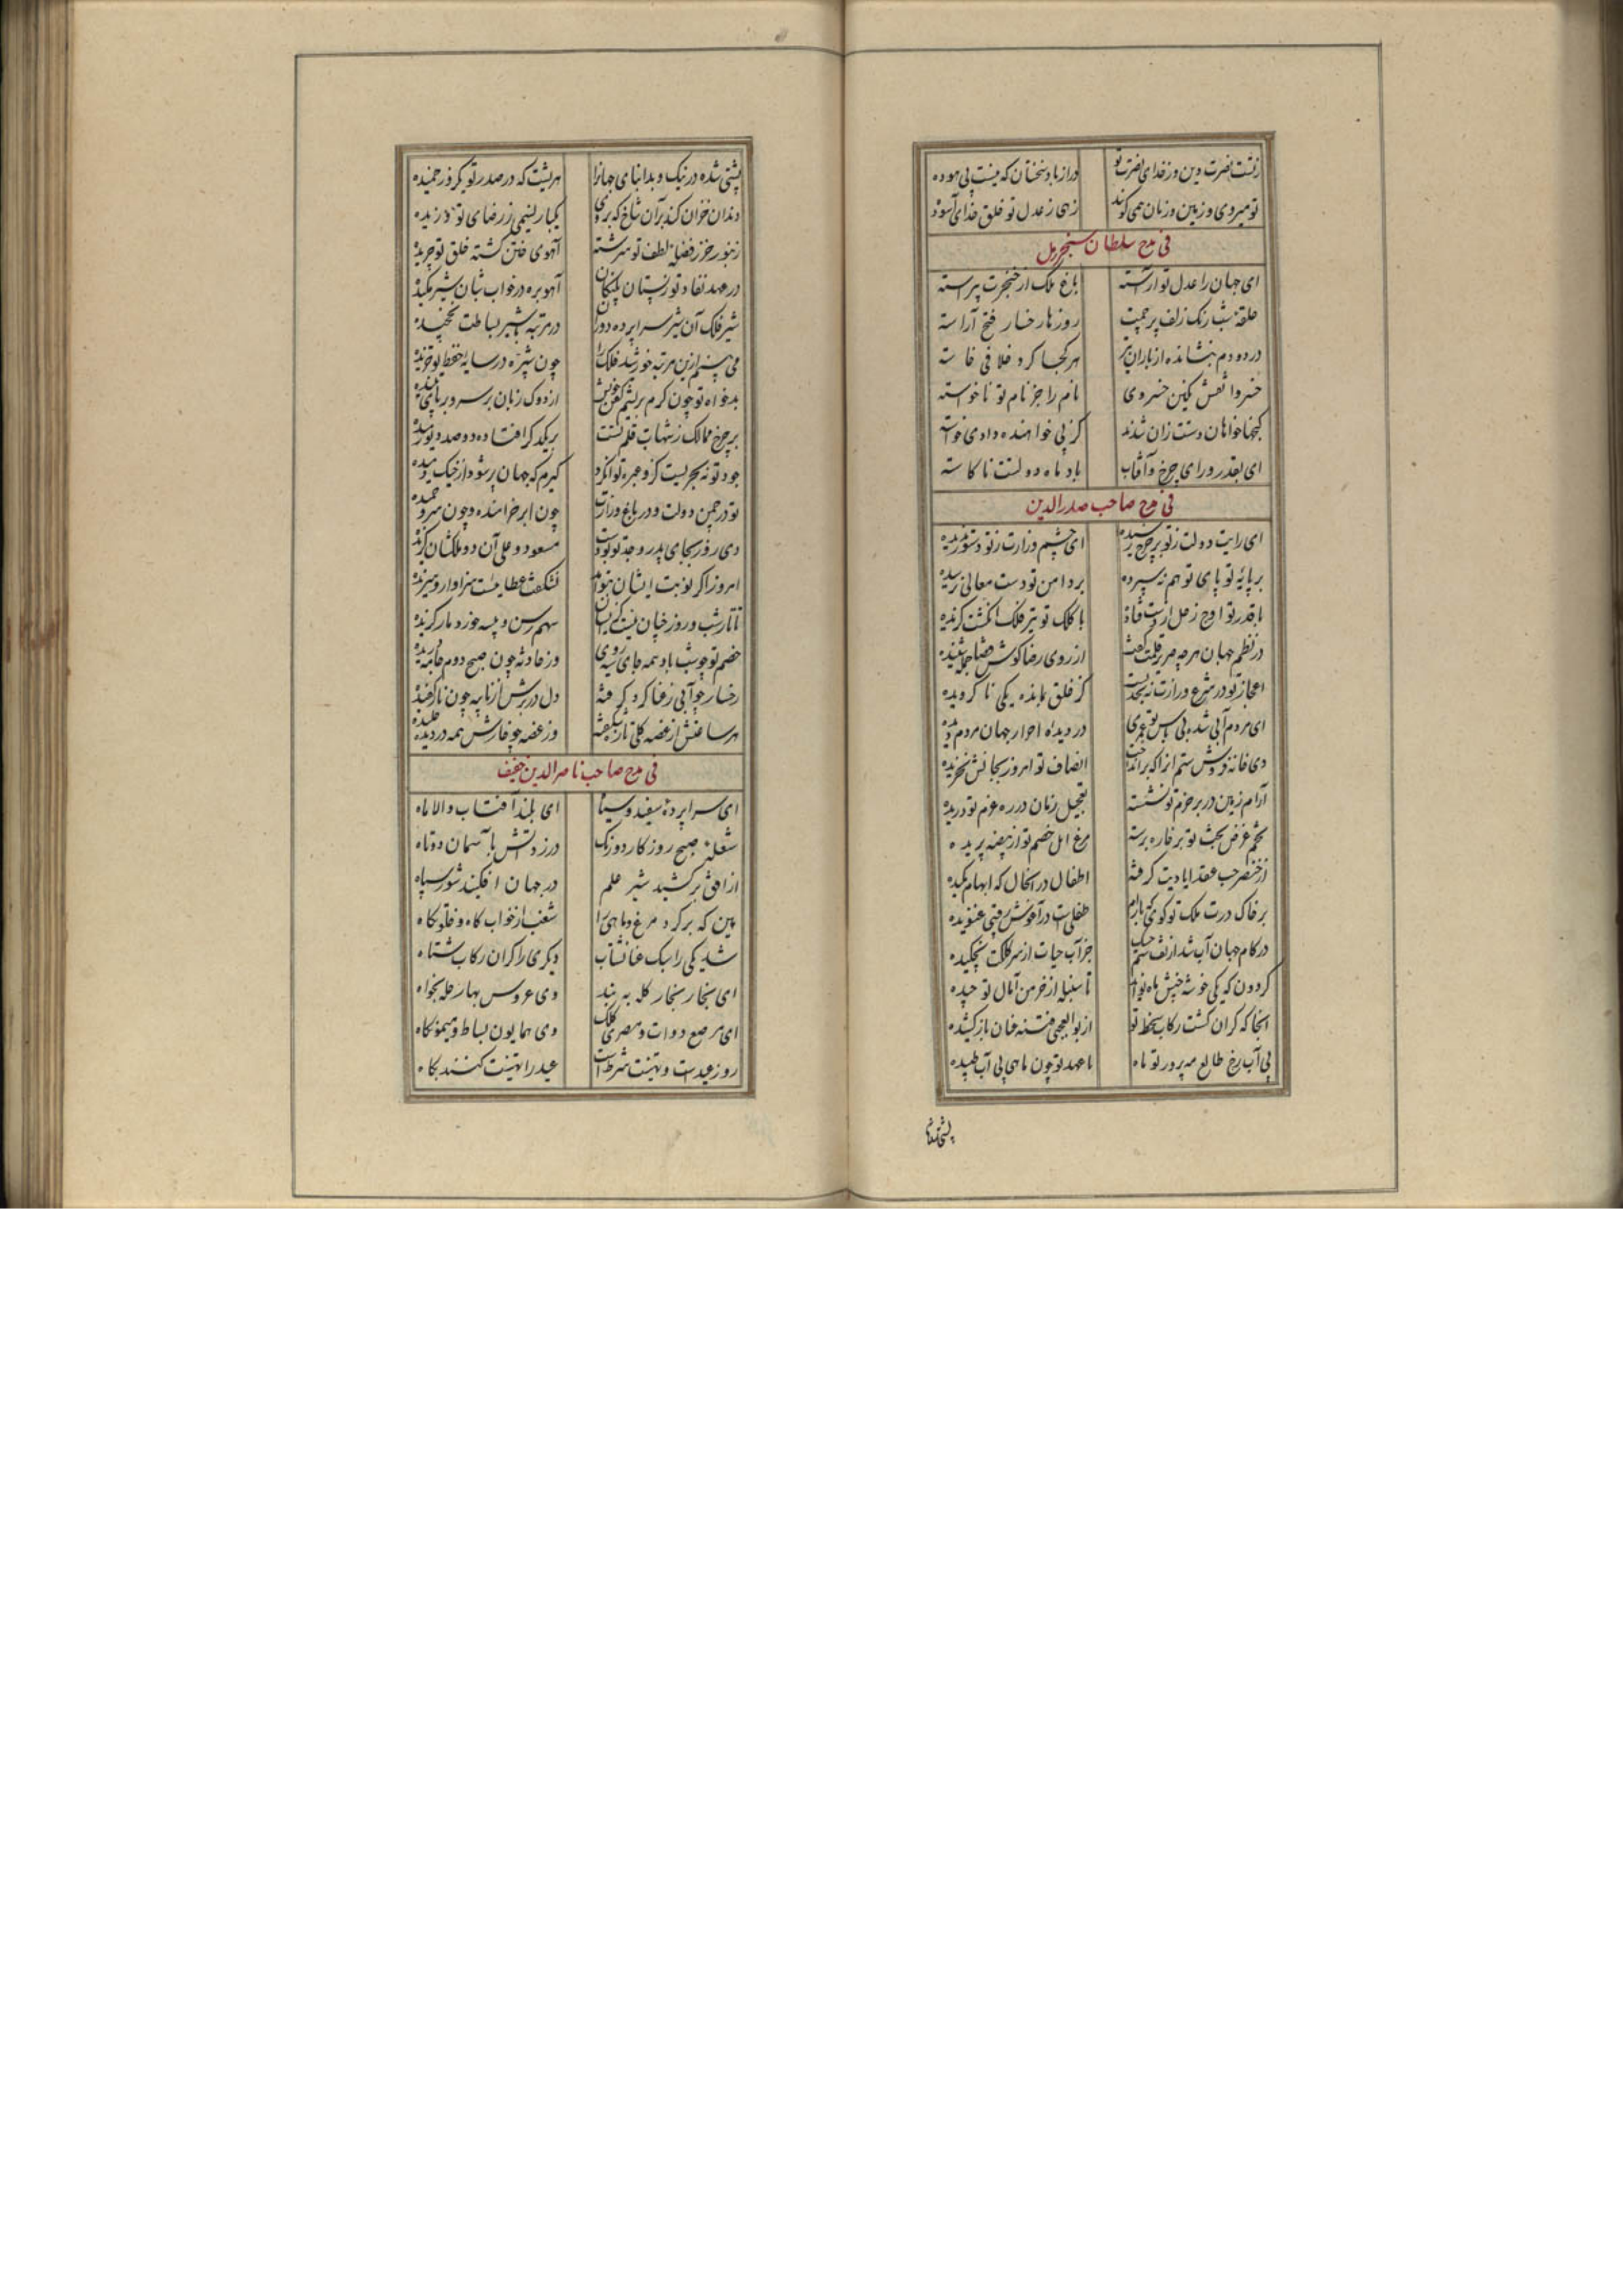 زتست نصرت دین وز خدای نصرت تو دراز باد سخنتان که نیست بی هوده
تو میروی و زمین و زمان همی گوند زهی ز عدل تو خلق خدای آسوده
فی مدح سلطان سنجر
ای جهان را عدل تو آراسته باغ ملک از خنجرت پیراسته
حلقه شب رنک زلف پرچمت روزها رخسار فتح آراسته
در دو دم بنشانده از باران تیر هر کجا کرد خلافی خاسته
خسروا نقش نکین خسروی نام را جز نام تو ناخواسته
کنجها خواهان دستت زان شدند کز پی خواهنده دادی خواسته
ای بقدر و رای چرخ و آفتاب باد ماه دولتت ناکاسته
فی مدح صاحب صدرالدین
ای رایت دولت ز تو بر چرخ رسیده ای چشم وزارت ز تو دستور ندیده
بر پایه تو پای توهم نسپرده بر دامن تو دست معالی نرسیده
با قدر تو اوج زحل از دست فتاده با کلک تو تیر فلک انکشت کزیده
در نظم جهان هر چه صریر قلمت کفت از روی رضا کوش قضا جمله شنیده
اعجاز تو در شرع وزارت نه بحدیست کز خلق بمانده یکی ناکرویده
ای مردم آبی شده بی باس تو عمری در دیده احرار جهان مردم دیده
دی خانه فروش ستم آنرا که برانداخت انصاف تو امروز بجانش بخریده
آرام زمین در بر حزم تو نشسته تعجیل زمان در ره عزم تو دویده
تخم غرض بخت تو بر خاره برسته مرغ امل خصم تو از بیضه پریده
از خنصر چپ عقد ایادیت کرفته اطفال در آنحال که ابهام مکیده
بر خاک درت ملک تو کوی که بآرام طفلیست در آغوش رقیبی غنویده
در کام جهان آب شد از تف ستم جز آب حیات از سر کلکت نچکیده
کردون که یکی خوشه چنش ماه نو آمد تا سنبله از خرمن آمال تو چیده
آنجا که کران کشت رکاب سخط تو از بوالعجبی فتنه عنان باز کشیده
بی آب رخ طالع مه پرور تو ماه با عهد تو چون ماهی بی آب طپیده
پشتی شده در نیک و بد ابنای جهانرا هر پشت که در صدر تو یکروز خمیده
دندان خزان کند بر آن شاخ که بر وی یکبار نسیمی ز رضای تو وزیده
زنبور خزر فضله لطف تو سرشته آهوی ختن کشته خلق تو چریده
در عهد نفاذ تو ز پستان پلنکان آهو بره در خواب شبان شیر مکیده
شیر فلک آن شیر سراپرده دوران در مرتبه با شیر بساطت نچخیده
می بینم ازین مرتبه خورشید فلک را چون شب پره در سایه حفظ تو خزیده
بدخواه تو چون کرم بریشم کفن خویش از دوک زبان بر سر و بر پای تنیده
بر چرخ ممالک ز شهاب قلم تست بر یکدکر افتاده دو صد دیو رمیده
جود تو نه بحریست کزو عبره توان کرد کیرم که جهان پر شود از خیک دمیده
تو در چمن دولت و در باغ وزارت چون ابر خرامنده و چون سرو چمیده
دی روز بجای پدر و جد تو بودست مسعود و علی آن دو ملکشان بکزیده
امروز اکر نوبت ایشان بتو آمد نشکفت عطایست سزاوار و سزیده
تا تار شب و روز چنان نیست کز ایشان سهم رسن پیسه خورد مار کزیده
خصم تو چو شب باد همه جای سیه روی وز حادثه چون صبح دوم جامه دریده
رخسار چو آبی ز عنا کرد کرفته دل در برش از نایبه چون نار کفیده
هر ساعتش از غصه کلی تازه شکفته وز غصه چو خارش همه در دیده خلیده
فی مدح صاحب ناصرالدین
ای سراپرده سفید و سیاه ای بلند آفتاب و والا ماه
شعله صبح روزکار دو رنک در زد آتش باسمان دوتاه
از افق برکشید شیر علم در جهان افکنید شور سپاه
بین که برکرد مرغ و ماهی را شغب از خواب کاه و خلوتکاه
شد یکی را سبک عنان شتاب دیکری را کران رکاب شتاه
ای سنجار سنجار کله به بند وی عروس بهار حله بخواه
ای مرصع دوات و مصری کلک وی همایون بساط و میمونکاه
روز عیدست و تهنیت شرطست عید را تهنیت کنند بکاه